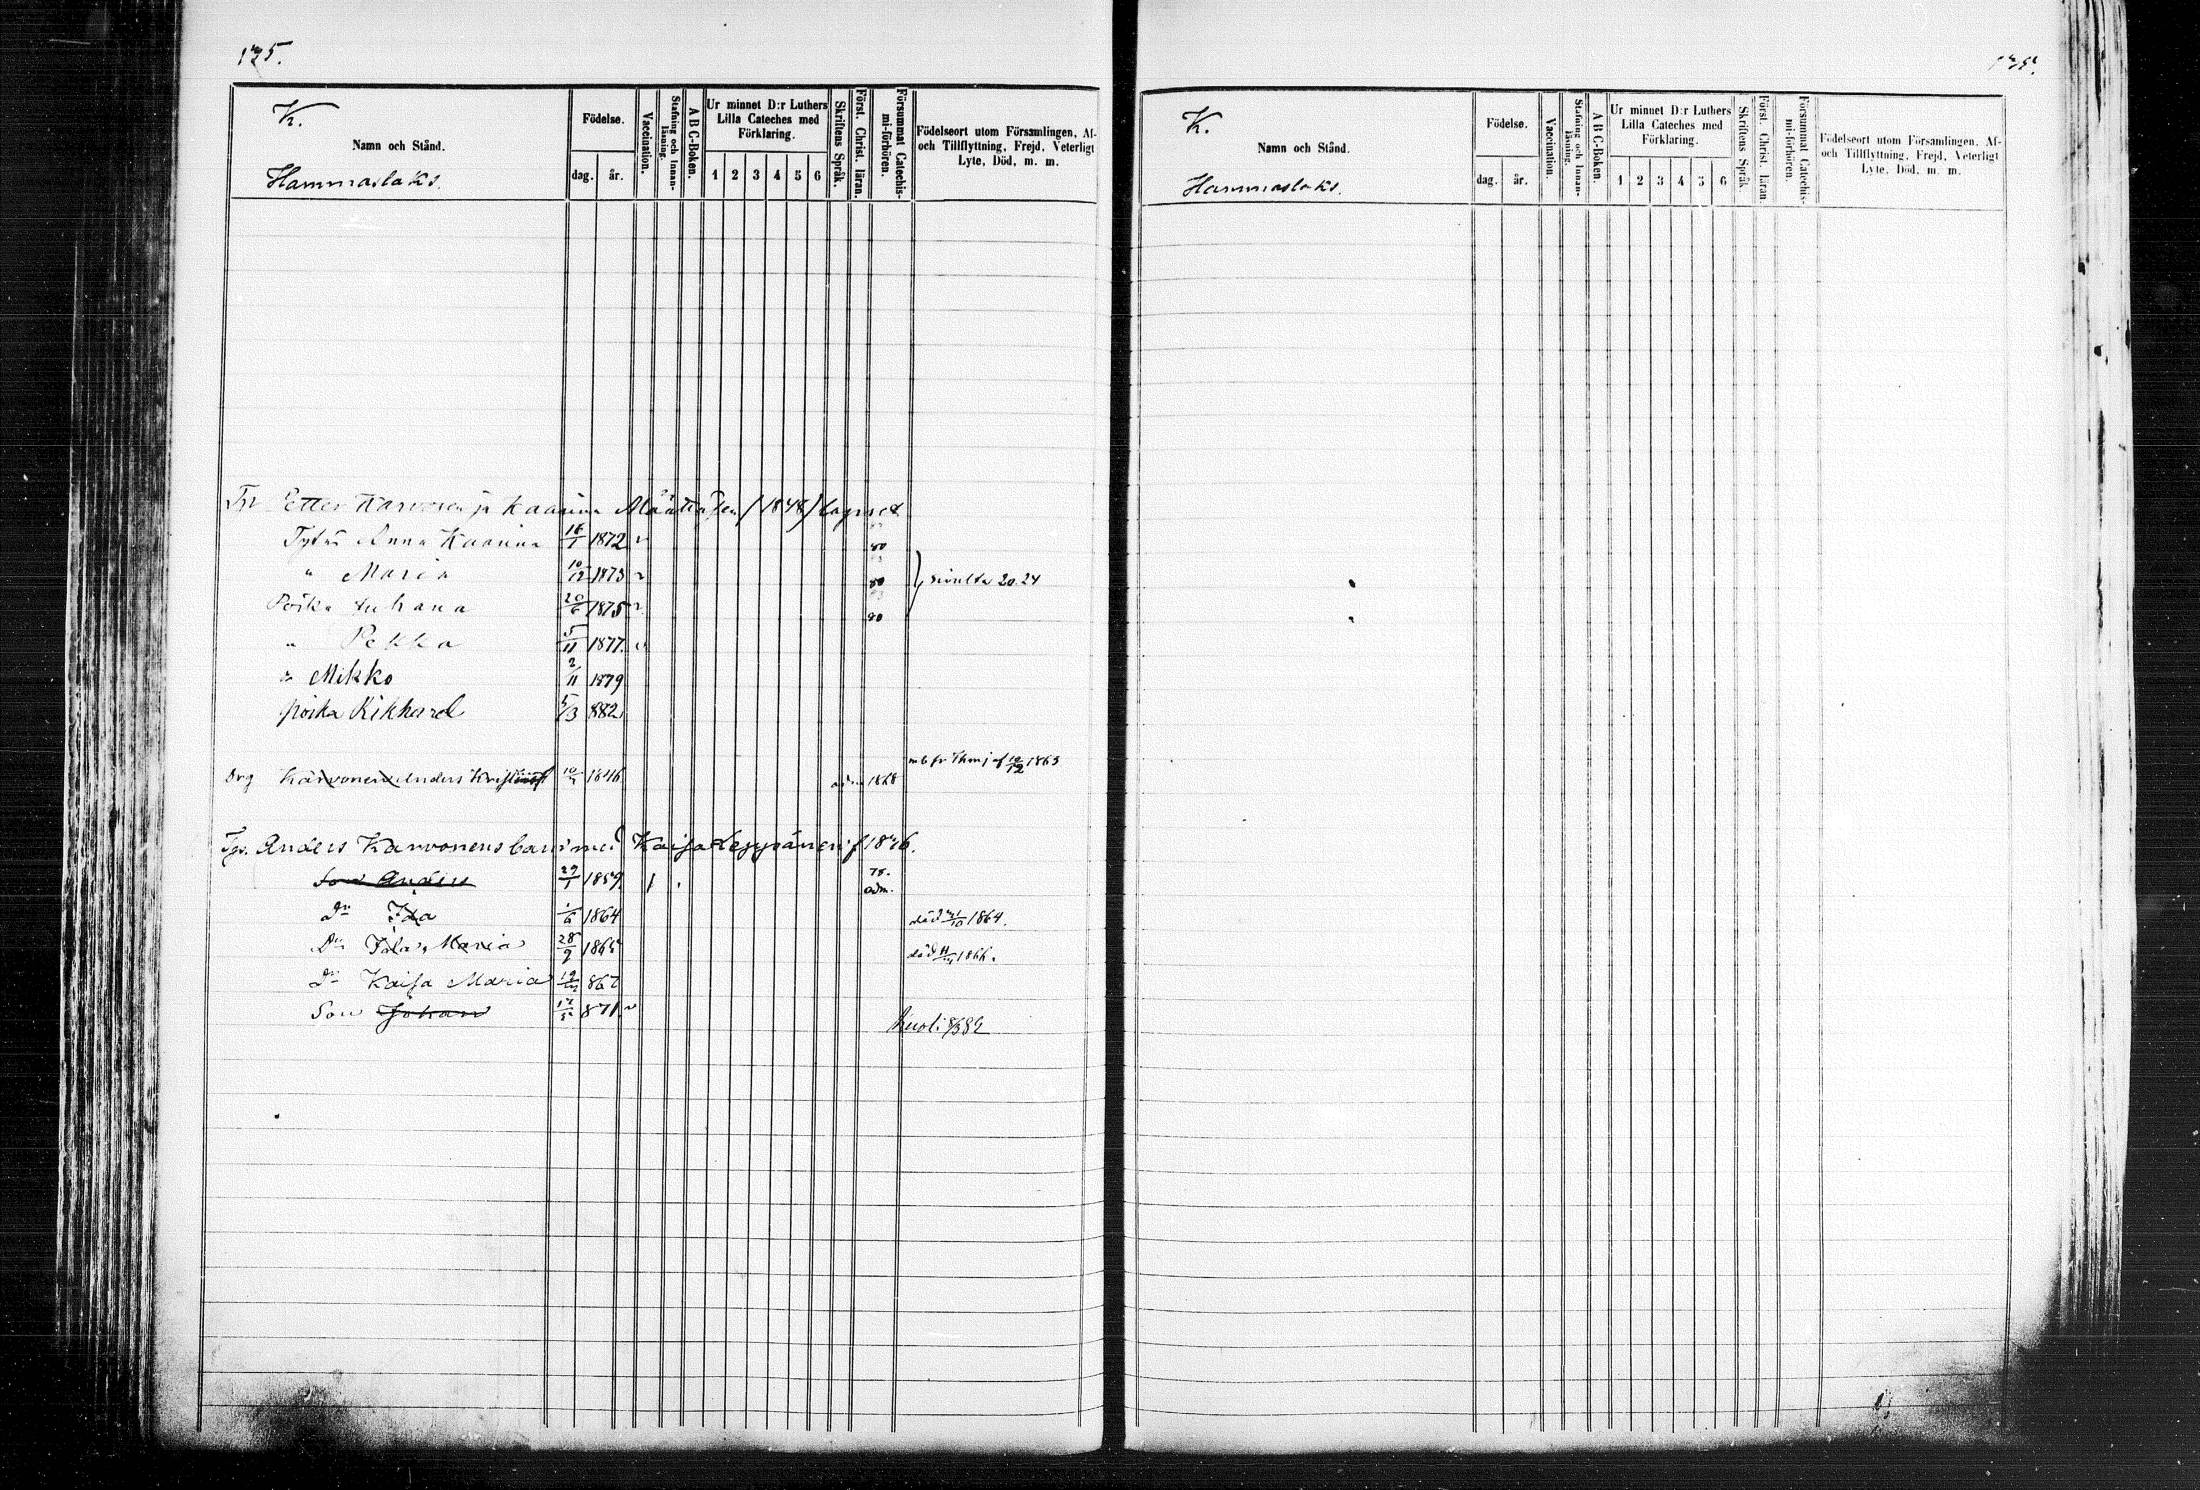 175.
K.
Namn och Stånd.
Hammaslaks.
Födelse.
dag. år.
Vaccination.
Stafning och Innanläsning.
A B C-Boken.
Ur minnet D:r Luthers Lilla Cateches med Förklaring.
1 2 3 4 5 6
Skriftens Språk.
Först. Christ. läran.
Försummat Catechismi-förhören.
Födelseort utom Församlingen, Af- och Tillflyttning, Frejd, Veterligt Lyte, Död, m. m.
Petter Karvosen ja Kaarina Määttäsen (1848) lapset
Tytär Anna Kaarina 16/1 1872 v 80
" Maria 10/12 1873 v 80 sivulta 20.24
Poika Juhana 20/6 1875 v 80
" Pekka 5/11 1877. v
" Mikko 2/11 1879
poika Rikhard 5/3 882
Drg Karvonen Anders 1846 adm 1868 1863
Anders Karvonens barn med Kaisa Leppänen f 1826.
Son Anders 29/1 1859 78. adm.
Dr Ida 1/6 1864 död /10 1864.
Dr Ida Maria 28/9 1865 död 1866.
Dr Kaisa Maria 867
Son Johan 871. v Kuoli 882
175.
K.
Namn och Stånd.
Hammaslaks.
Födelse.
dag. år.
Vaccination.
Stafning och Innanläsning.
A B C-Boken.
Ur minnet D:r Luthers Lilla Cateches med Förklaring.
1 2 3 4 5 6
Skriftens Språk
Först. Christ. läran.
Försummat Catechismi-förhören.
Födelseort utom Församlingen, Af- och Tillflyttning, Frejd, Veterligt Lyte, Död, m. m.